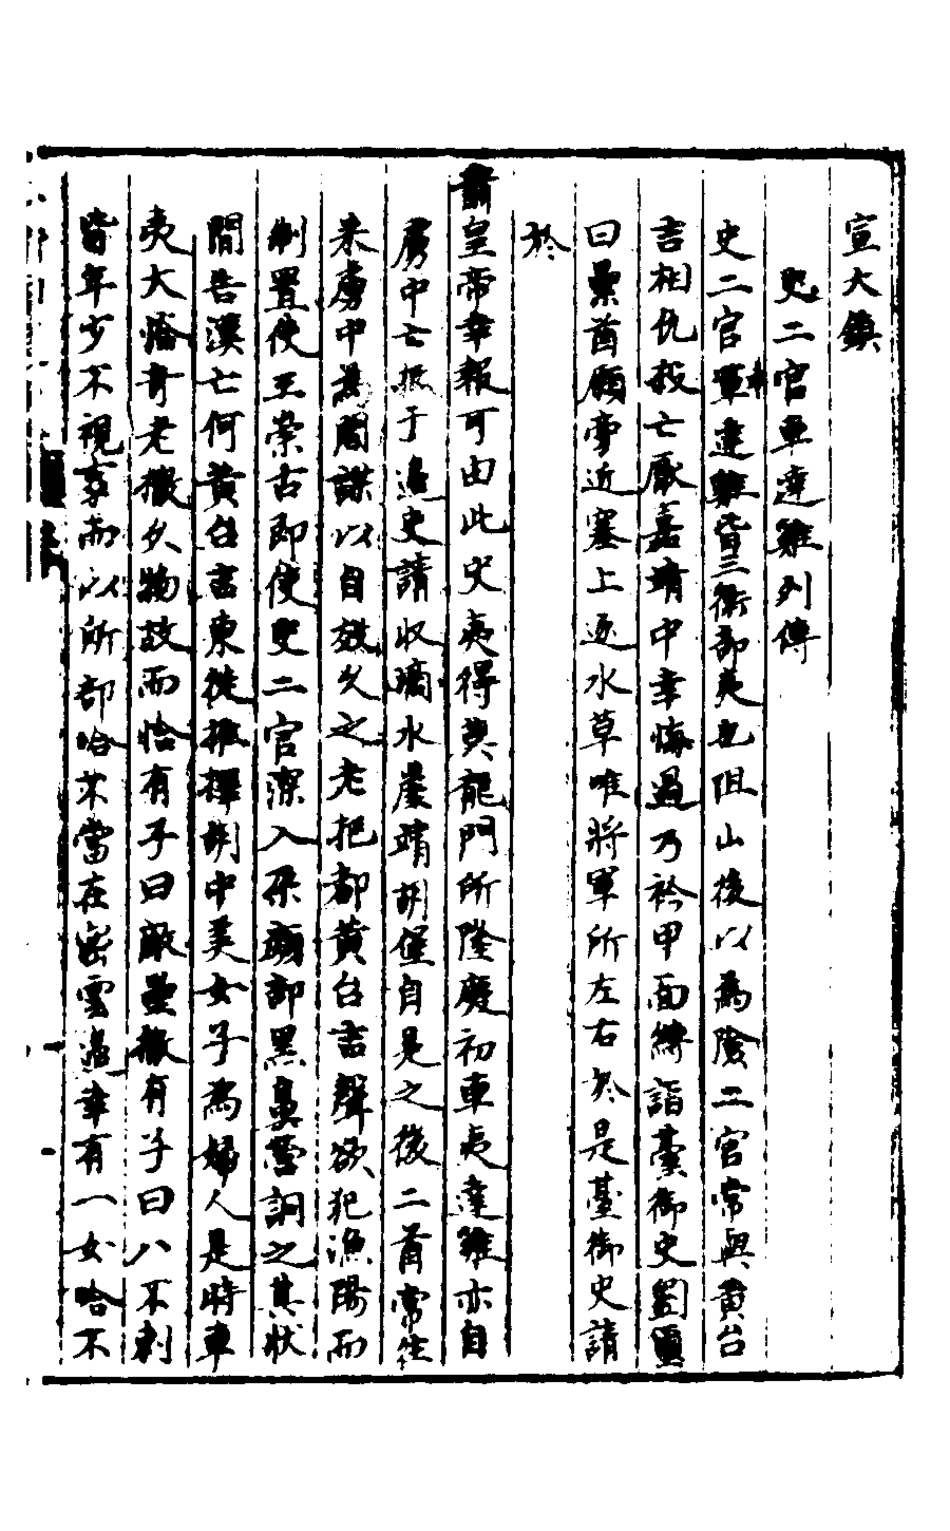 宣大鎮
史二官車達雞列傳
史二官車達雞皆三衛部夷也阻山後以為險二官常與黃台
吉相仇殺亡厭嘉靖中幸悔過乃衿甲面縛詣臺御史劉璽
曰纍酋願旁近塞上逐水草唯將軍所左右於是臺御史請
於
肅皇帝幸報可由此史夷得龍門所隆慶初車夷達雞亦自
虜中亡抵于邊史請收璃水崖靖胡堡自是之後二酋常往
来虜中為間諜以自效久之老把都黃台吉聲欲犯漁陽而
制置使王崇古即使史二官深入朵顏部黑臭營詗之其狀
間告漢亡何黃台吉東徙推擇胡中美女子為婦人是時車
夷大憣奇老撒久物故而恰有子曰敵壘撒有子曰八不剌
皆年少不視事而以所部哈不當在密雲邊幸有一女哈不